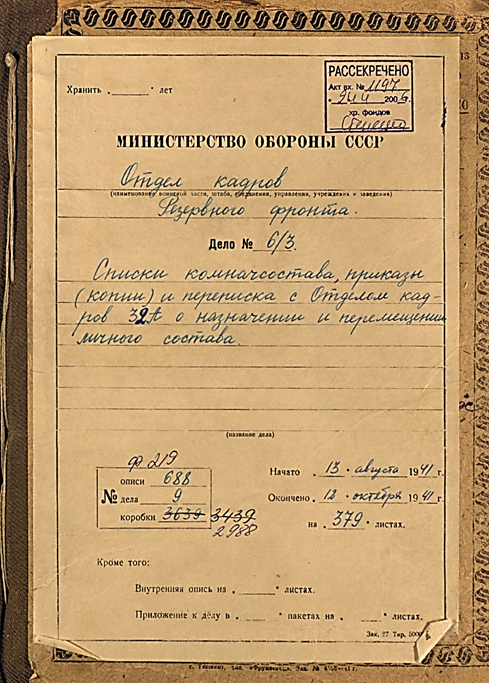 Хранить лет
РАССЕКРЕЧЕНО
Акт вх. № 1197
200
хр. фондов
МИНИСТЕРСТВО ОБОРОНЫ СССР
Отдел кадров
(наименование воинской части, штаба, соединения, управления, учреждения и заведения)
Резервного фронта.
Дело № 6/3.
Списки комначсостава, приказы
(копии) и переписка с Отделом кад-
ров 32А о назначении и перемещении
личного состава.
(название дела)
ф 219
описи 688
№ дела 9
коробки 3639 3439
2988
Начато 13 августа 1941 г.
Окончено 12 октября 1941 г.
на 379 листах.
Кроме того:
Внутренняя опись на листах.
Приложение к делу в пакетах на листах.
Зак. 87 Тир. 5000